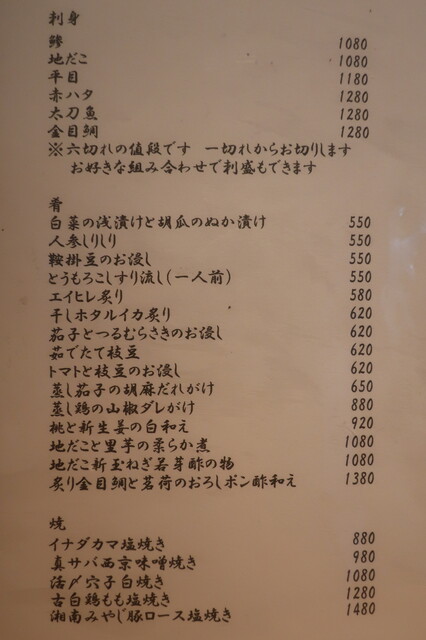 刺身
鯵 1080
地だこ 1080
平目 1180
赤ハタ 1280
太刀魚 1280
金目鯛 1280
※六切れの値段です　一切れからお切りします
お好きな組み合わせで刺盛もできます
肴
白菜の浅漬けと胡瓜のぬか漬け 550
人参しりしり 550
鞍掛豆のお浸し 550
とうもろこしすり流し(一人前) 550
エイヒレ炙り 580
干しホタルイカ炙り 620
茄子とつるむらさきのお浸し 620
茹でたて枝豆 620
トマトと枝豆のお浸し 620
蒸し茄子の胡麻だれがけ 650
蒸し鶏の山椒ダレがけ 880
桃と新生姜の白和え 920
地だこと里芋の柔らか煮 1080
地だこ新玉ねぎ若芽酢の物 1080
炙り金目鯛と茗荷のおろしポン酢和え 1380
焼
イナダカマ塩焼き 880
真サバ西京味噌焼き 980
活〆穴子白焼き 1080
古白鶏もも塩焼き 1280
湘南みやじ豚ロース塩焼き 1480